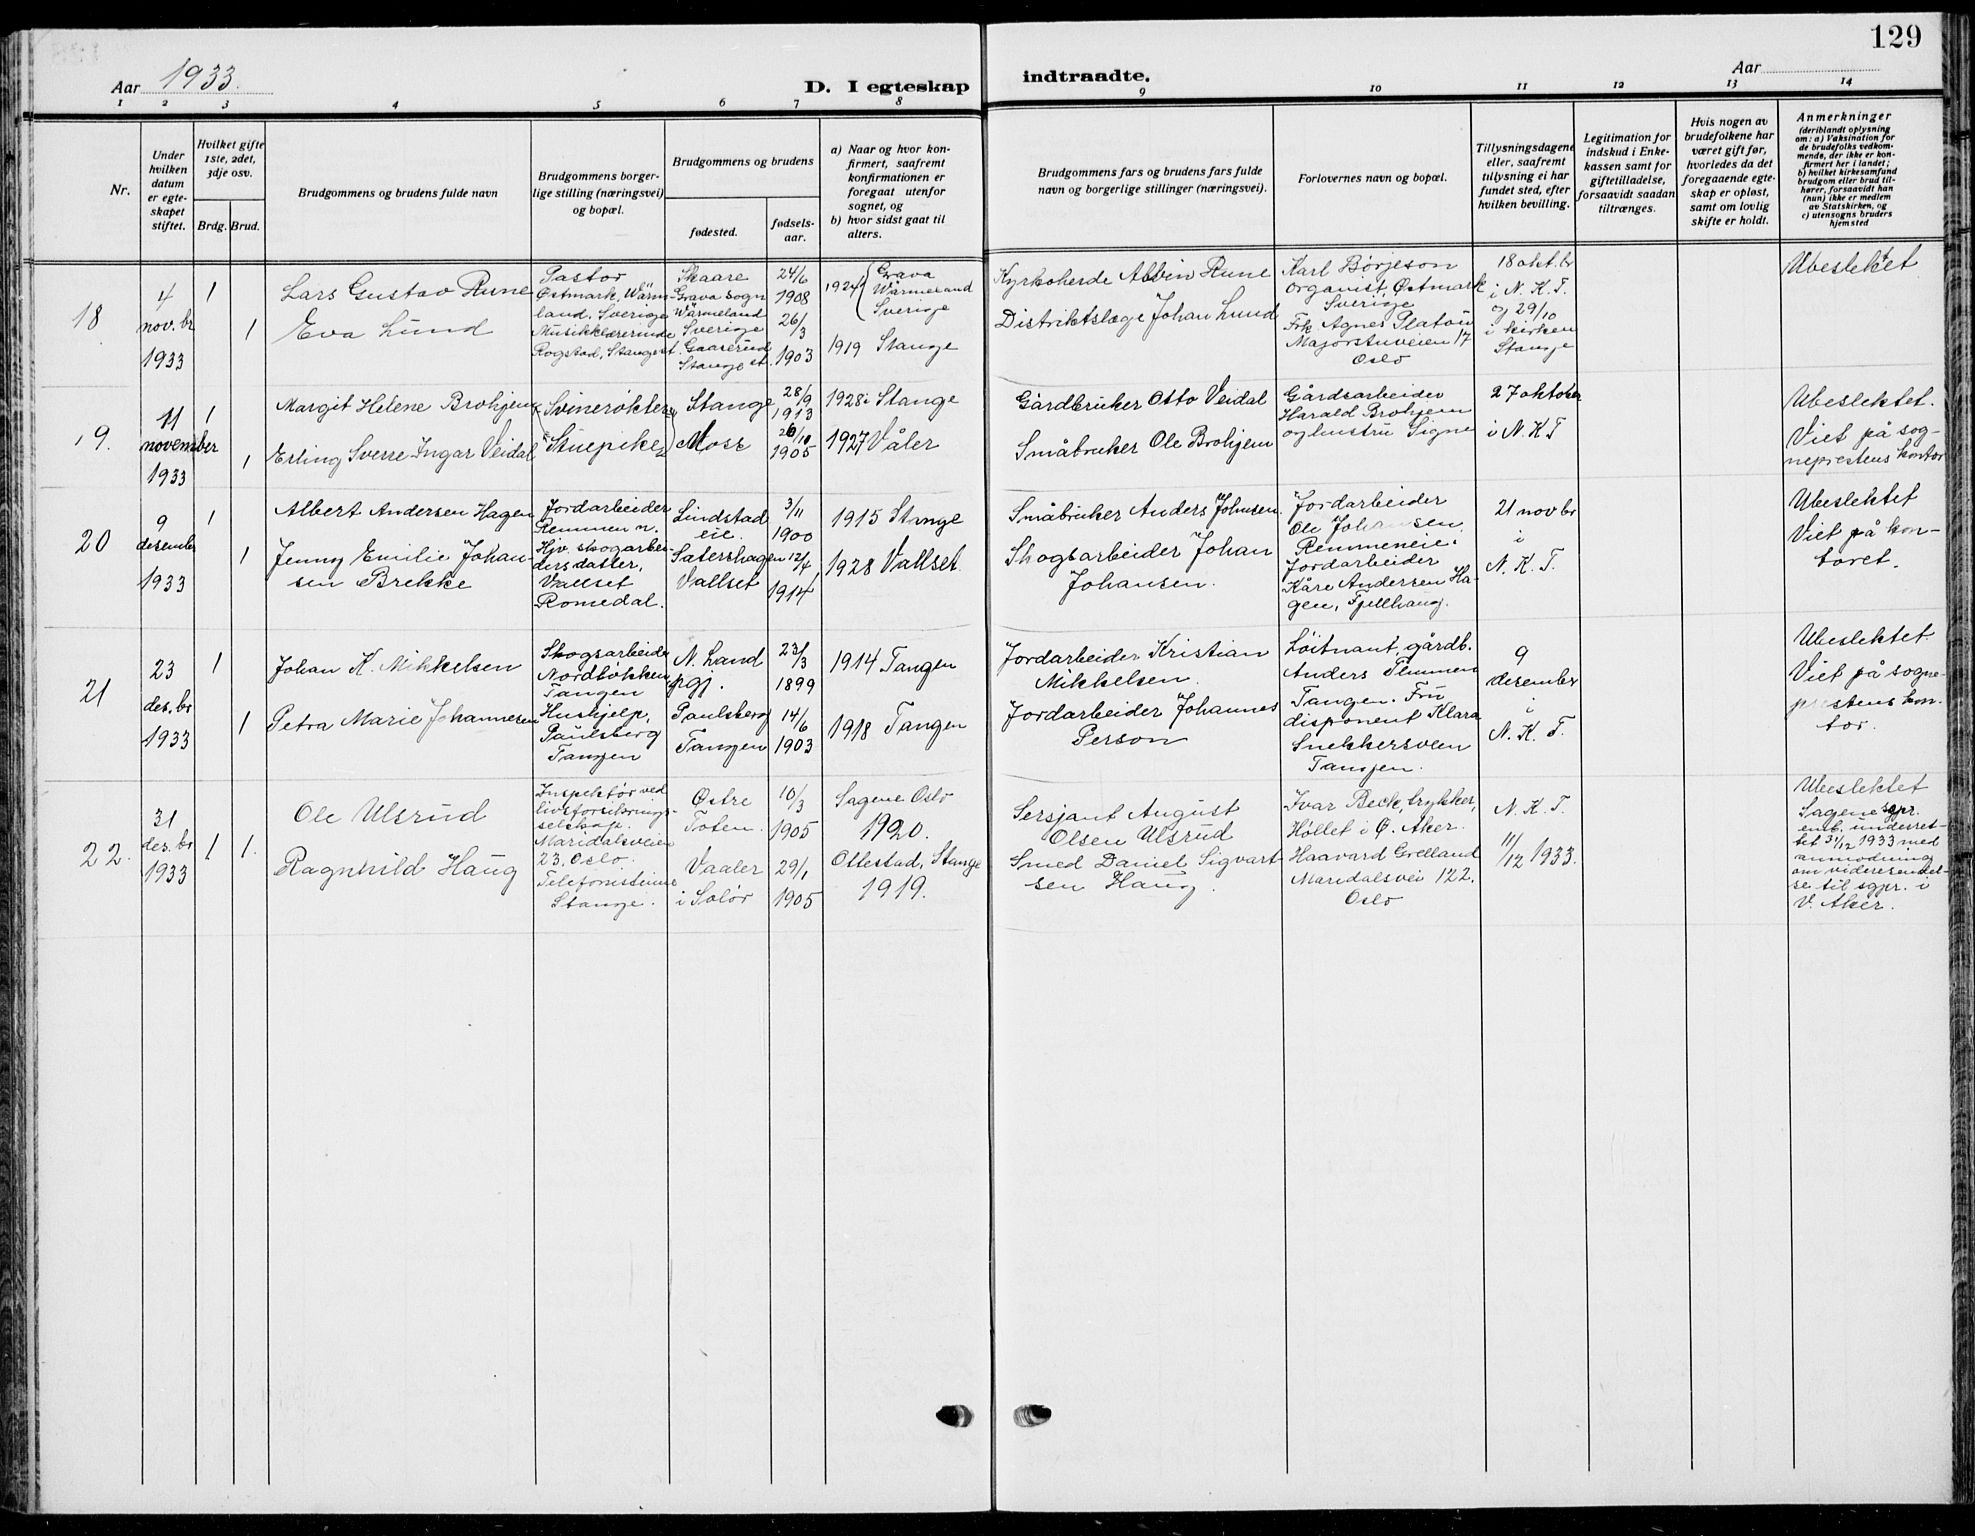 129
Aar 1933.
D. I egteskap
indtraadte.
Aar
1 2 3 4 5 6 7 8 9 10 11 12 13 14
Nr.
Under hvilken datum er egteskapet stiftet.
Hvilket gifte 1ste, 2det, 3dje osv.
Brdg. Brud.
Brudgommens og brudens fulde navn
Brudgommens borgerlige stilling (næringsvei) og bopæl.
Brudgommens og brudens
fødested.
fødselsaar.
a) Naar og hvor konfirmert, saafremt konfirmationen er foregaat utenfor sognet, og
b) hvor sidst gaat til alters.
Brudgommens fars og brudens fars fulde navn og borgerlige stillinger (næringsvei).
Forlovernes navn og bopæl.
Tillysningsdagene eller, saafremt tillysning ei har fundet sted, efter hvilken bevilling.
Legitimation for indskud i Enkekassen samt for giftetilladelse, forsaavidt saadan tiltrænges.
Hvis nogen av brudefolkene har været gift før, hvorledes da det foregaaende egteskap er opløst, samt om lovlig skifte er holdt.
Anmerkninger
(deriblandt oplysning om: a) Vaksination for de brudefolks vedkommende, der ikke er konfirmert her i landet; b) hvilket kirkesamfund brudgom eller brud tilhører, forsaavidt han (hun) ikke er medlem av Statskirken, og c) utensogns bruders hjemsted
18
4
nov. br
1933
1
1
Lars Gustav Rune
Eva Lund
Pastor
Østmark, Wärm-
land, Sverige
Musikklærerinde
Rogstad, Stange st.
Skaare
Grava sogn
Wärmeland
Sverige
Gaaserud
Stange st.
24/6
1908
26/3
1903
1924 { Grava
Wärmeland
Sverige
1919 Stange
Kyrkoherde Albin Rune
Distriktslæge Johan Lund
Karl Børjeson
organist, Østmark
Sverige
Frk. Agnes Platou
Majorstuveien 17
Oslo
18 okt. br
i N. K. T.
og 29/10
i kirken
Stange
Ubeslektet
19.
11
november
1933
1
1
Margit Helene Brohjem
Erling Sverre Ingar Veidal
Svinerøkter
Stuepike
Stange
Moss
28/9
1913
26/10
1905
1928 i Stange
1927 Våler
Gårdbruker Otto Veidal
Småbruker Ole Brohjem
Gårdsarbeider
Harald Brohjem
og hustru Signe
27 oktober
i N. K. T
Ubeslektet.
Viet på sog-
neprestens kontor
20
9
desember
1933
1
1
Albert Andersen Hagen
Jenny Emilie Johan-
sen Brekke
Jordarbeider
Remmen n.
Hjv. skogarbei-
ders datter,
Vallset
Romedal.
Lindstad
eie.
Satershagen
Vallset
3/11
1900
12/4
1914
1915 Stange
1928 Vallset.
Småbruker Anders Johnsen
Skogsarbeider Johan
Johansen.
Jordarbeider
Ole Johansen
Remmeneie.
Jordarbeider
Kåre Andersen Ha-
gen, Fjellhaug.
21 nov br
i
N. K. T.
Ubeslektet
Viet på kon-
toret.
21
23
des. br
1933
1
1
Johan K. Mikkelsen
Petra Marie Johannesen
Skogsarbeider
Nordløkken
Tangen
Hushjelp,
Paulsberg
Tangen
N. Land
pgj.
Paulsberg
Tangen
23/3
1899
14/6
1903
1914 Tangen
1918 Tangen
Jordarbeider Kristian
Mikkelsen.
Jordarbeider Johannes
Person
Løitnant, gårdb.
Anders Tlemmen
Tangen. Fru
disponent Klara
Snekkersveen
Tangen.
9
desember
i
N. K. T.
Ubeslektet
Viet på sogne-
prestens kon-
tor.
22.
31
des. br
1933
1
1.
Ole Ulsrud
Ragnhild Haug
Inspektør ved
livsforsikrings-
selskap.
Maridalsveien
23, Oslo.
Telefonistinne
Stange.
Østre
Toten.
Vaaler
i Solør
10/3
1905
29/1
1905
Sagene Oslo
1920.
Ottestad, Stange
1919.
Sersjant August
Olsen Ulsrud
Smed Daniel Sigvart-
sen Haug.
Ivar Beck, trykker,
Høllet i Ø. Aker.
Haavard Grelland
Maridalsvei 122.
Oslo
N. K. T.
11/12 1933.
Ubeslektet
Sagene sgpr.
emb. underret-
tet 31/12 1933 med
anmodning
om videresendel-
se til sgpr. i
V. Aker.